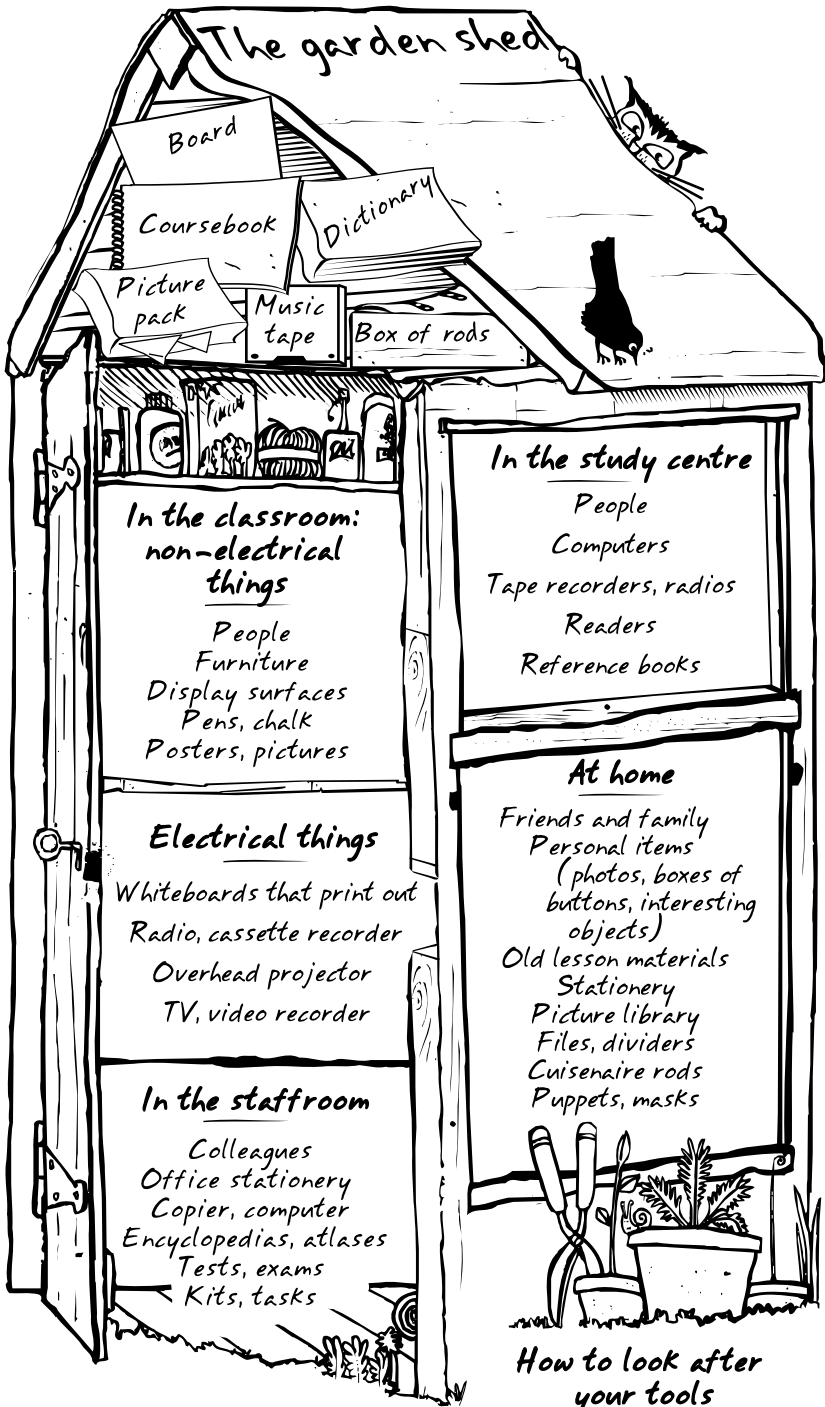 The garden shed
Board
Coursebook
Dictionary
Picture
pack
Music
tape
Box of rods
In the classroom:
non-electrical
things
People
Furniture
Display surfaces
Pens, chalk
Posters, pictures
Electrical things
Whiteboards that print out
Radio, cassette recorder
Overhead projector
TV, video recorder
In the staffroom
Colleagues
Office stationery
Copier, computer
Encyclopedias, atlases
Tests, exams
Kits, tasks
In the study centre
People
Computers
Tape recorders, radios
Readers
Reference books
At home
Friends and family
Personal items
(photos, boxes of
buttons, interesting
objects)
Old lesson materials
Stationery
Picture library
Files, dividers
Cuisenaire rods
Puppets, masks
How to look after
your tools